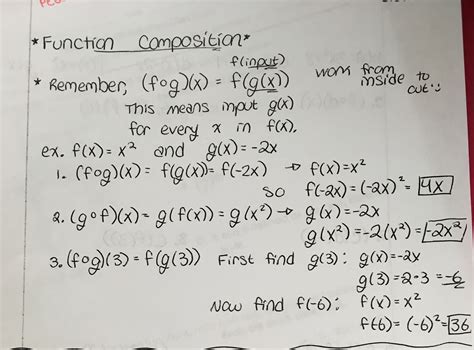 *Function Composition*
f(input)
* Remember, (f∘g)(x) = f(g(x)) work from inside to out:)
This means input g(x)
for every x in f(x).
ex. f(x)=x² and g(x)=-2x
1. (f∘g)(x) = f(g(x)) = f(-2x) → f(x)=x²
so f(-2x)=(-2x)²=4x
2. (g∘f)(x) = g(f(x)) = g(x²) → g(x)=-2x
g(x²)=-2(x²)=-2x²
3. (f∘g)(3) = f(g(3)) First find g(3): g(x)=-2x
g(3)=-2·3=-6
Now find f(-6): f(x)=x²
f(-6)=(-6)²=36